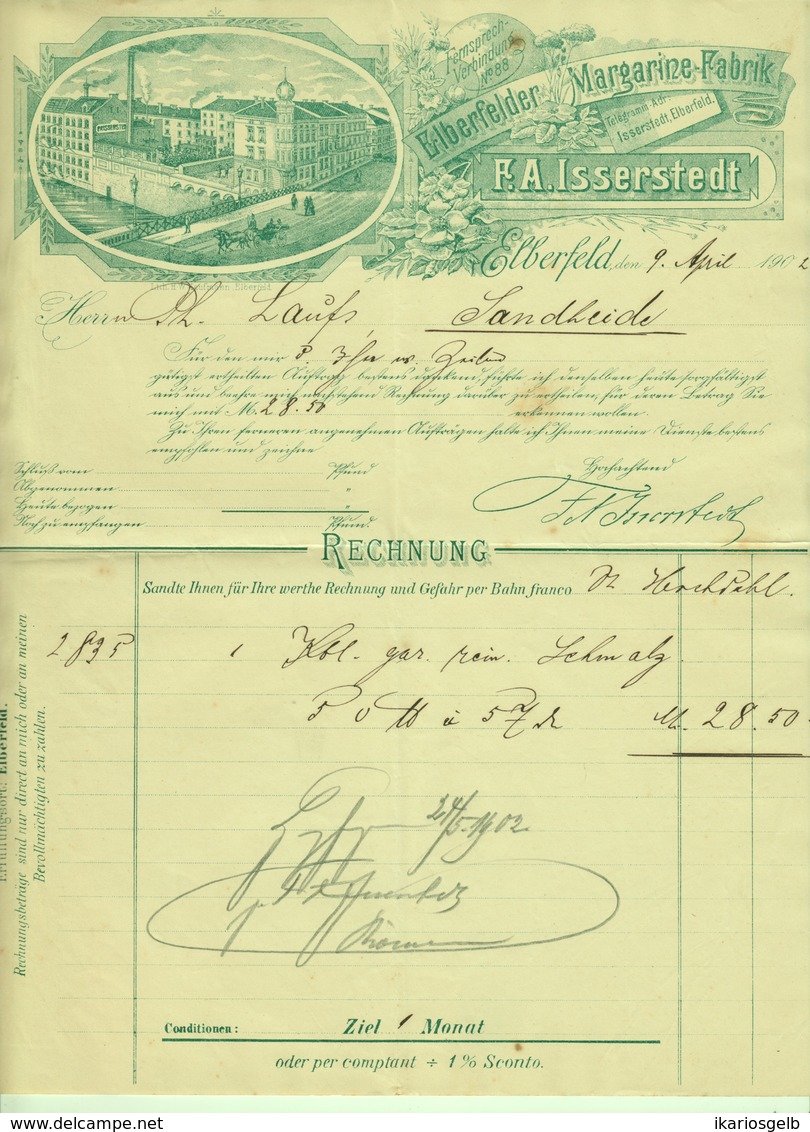 Fernsprech-
Verbindung
No 88
Elberfelder Margarine-Fabrik
Telegramm-Adr.:
Isserstedt, Elberfeld.
F. A. Isserstedt
Elberfeld, den 9. April 1902
Herrn Ph. Laufs, Sandheide
Für den mir
gütigst ertheilten Auftrag bestens dankend, führte ich denselben heute sorgfältigst
aus und beehre mich nachstehend Rechnung darüber zu ertheilen, für deren Betrag Sie
mich mit M. 28.50 erkennen wollen.
Zu Ihren ferneren angenehmen Aufträgen halte ich Ihnen meine Dienste bestens
empfohlen und zeichne
Hochachtend
Schluß vom Pfund
Abgenommen "
Heute bezogen "
Noch zu empfangen Pfund.
F A Isserstedt
RECHNUNG
Sandte Ihnen für Ihre werthe Rechnung und Gefahr per Bahn franco St Hochdahl.
2835 1 Kbl. gar. rein. Schmalz
50 ℔ à 57 M. 28.50
24/5. 1902
Erfüllungsort: Elberfeld.
Rechnungsbeträge sind nur direct an mich oder an meinen
Bevollmächtigten zu zahlen.
Conditionen: Ziel 1 Monat
oder per comptant ÷ 1% Sconto.
ikariosgelb